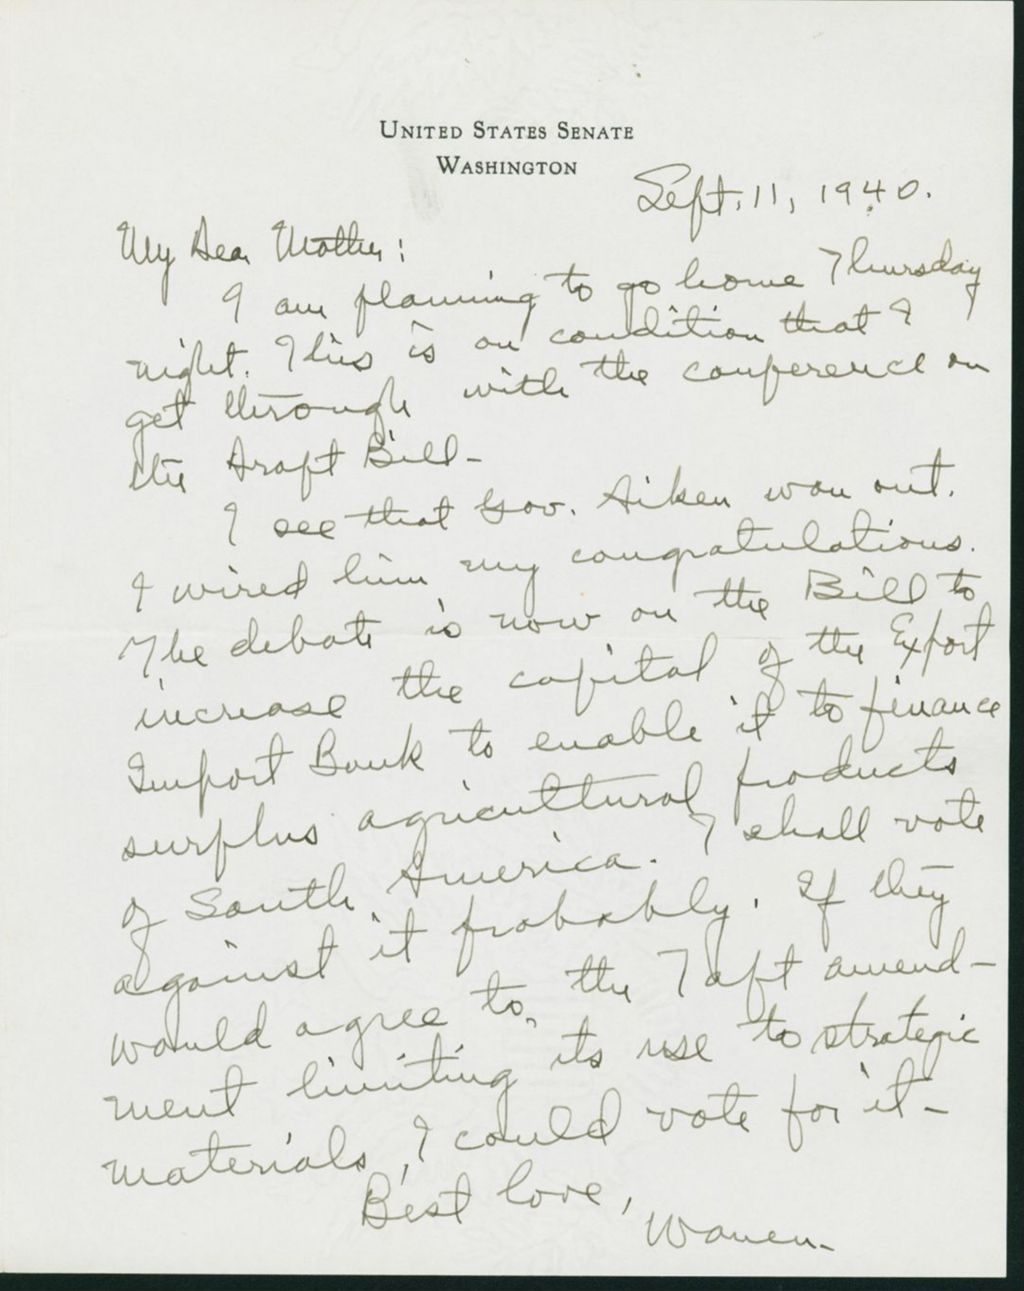 UNITED STATES SENATE
WASHINGTON
Sept. 11, 1940.
My Dear Mother:
I am planning to go home Thursday
night. This is on condition that I
get through with the conference on
the Draft Bill-
I see that Gov. Aiken won out.
I wired him my congratulations.
The debate is now on the Bill to
increase the capital of the Export
Import Bank to enable it to finance
surplus agricultural products
of South America. I shall vote
against it probably. If they
would agree to the Taft amend-
ment limiting its use to strategic
materials, I could vote for it-
Best love,
Warren-